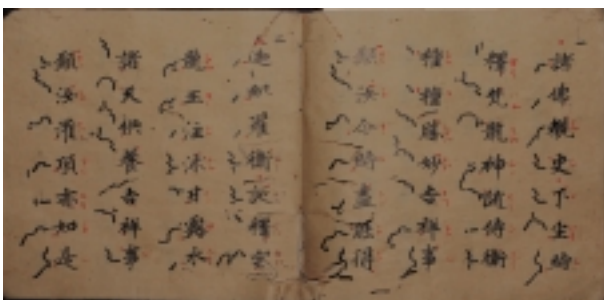 諸佛覩史下生時
釋梵龍神隨侍衛
種種勝妙吉祥事
願汝今時盡能得
迦毗羅衛誕釋宮
龍王注沐甘露水
諸天供養吉祥事
願汝灌頂亦如是